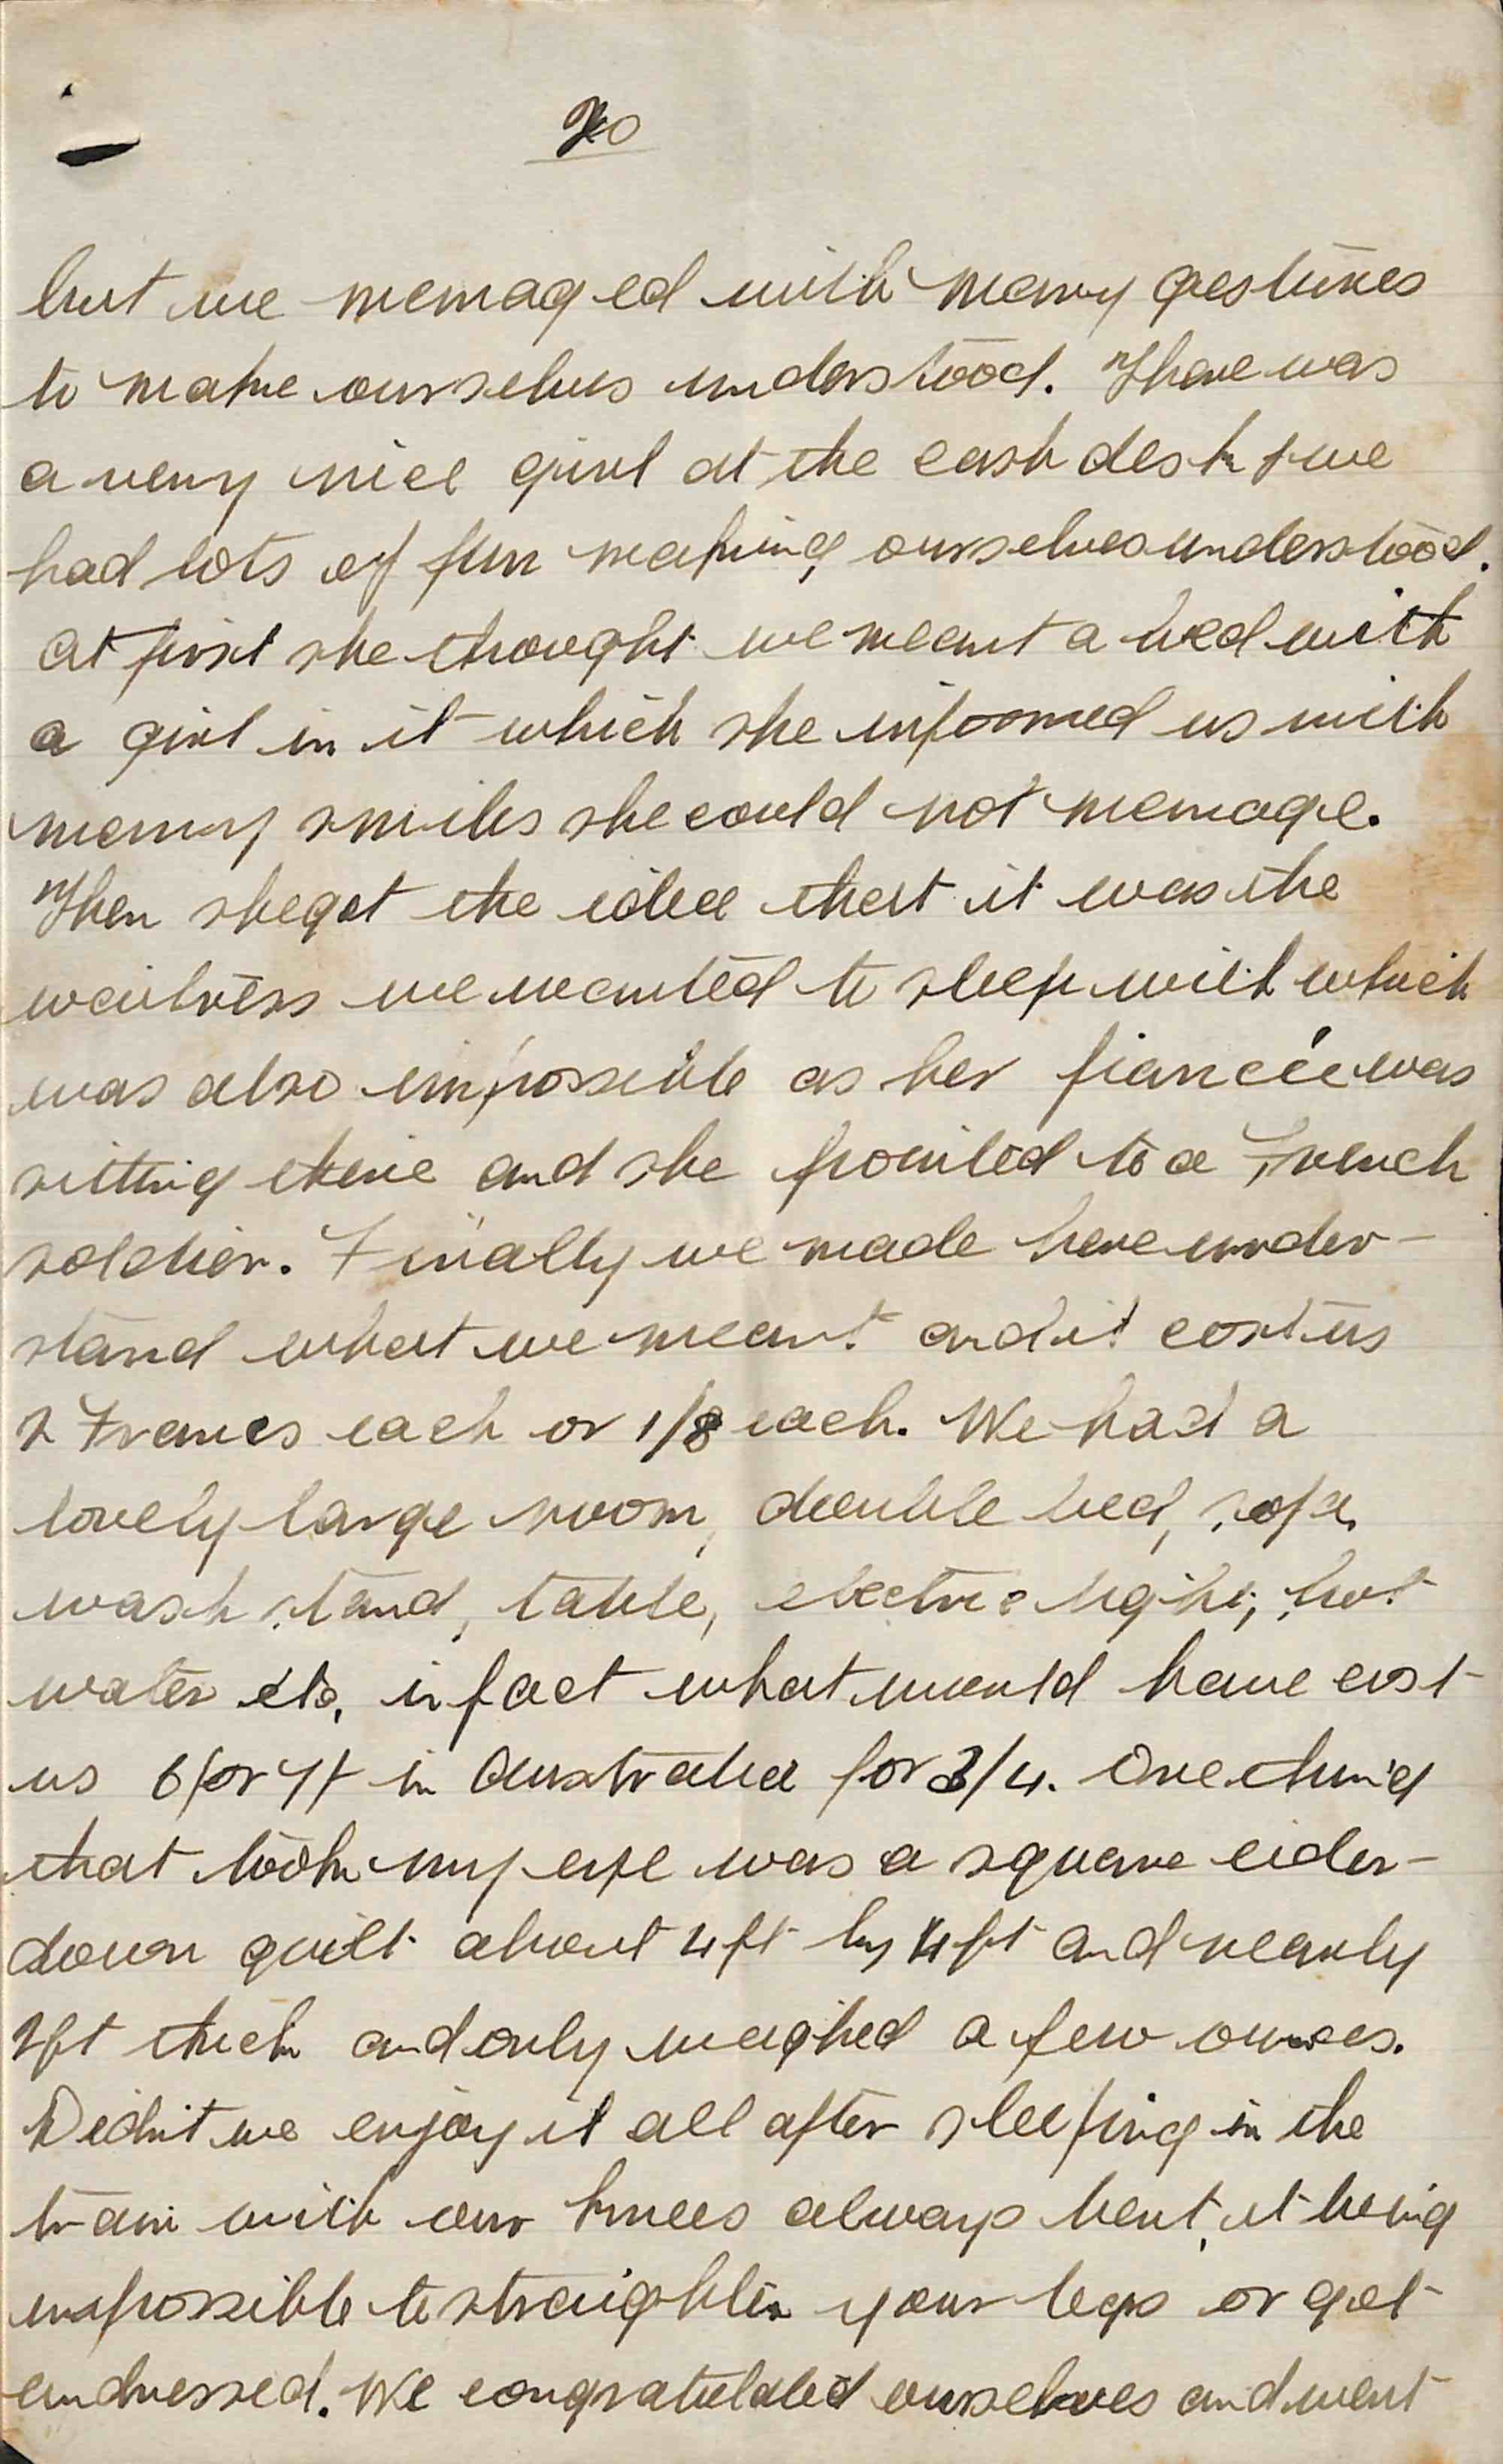 20
but we managed with many gestures
to make ourselves understood. There was
a very nice girl at the cash desk & we
had lots of fun making ourselves understood.
At first she thought we meant a bed with
a girl in it which she informed us with
many smiles she could not manage.
Then she got the idea that it was the
waitress we wanted to sleep with which
was also impossible as her fiancée was
sitting there and she pointed to a French
soldier. Finally we made here under-
stand what we meant and it cost us
2 Francs each or 1/8 each. We had a
lovely large room, double bed, sofa,
wash stand, table, electric light, hot
water etc, in fact what would have cost
us 6/ or 7/ in Australia for 3/4. One thing
that took my eye was a square eider-
down quilt about 4ft by 4ft and nearly
2ft thick and only weighed a few ounces.
Didn't we enjoy it all after sleeping in the
train with our knees always bent, it being
impossible to straighten your legs or get
undressed. We congratulated ourselves and went